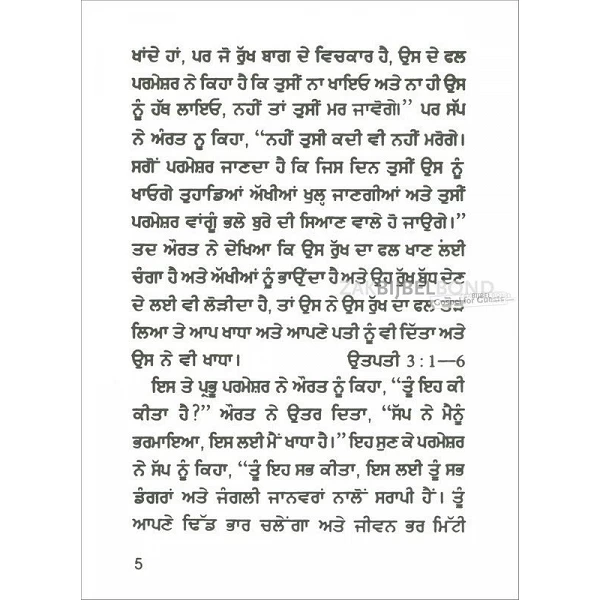 ਖਾਂਦੇ ਹਾਂ, ਪਰ ਜੋ ਰੁੱਖ ਬਾਗ ਦੇ ਵਿਚਕਾਰ ਹੈ, ਉਸ ਦੇ ਫਲ
ਪਰਮੇਸ਼ਰ ਨੇ ਕਿਹਾ ਹੈ ਕਿ ਤੁਸੀਂ ਨਾ ਖਾਇਓ ਅਤੇ ਨਾ ਹੀ ਉਸ
ਨੂੰ ਹੱਥ ਲਾਇਓ, ਨਹੀਂ ਤਾਂ ਤੁਸੀਂ ਮਰ ਜਾਵੋਗੇ।” ਪਰ ਸੱਪ
ਨੇ ਅੰਰਤ ਨੂ ਕਿਹਾ, “ਨਹੀਂ ਤੁਸੀ ਕਦੀ ਵੀ ਨਹੀਂ ਮਰੋਗੇ।
ਸਗੋਂ ਪਰਮੇਸ਼ਰ ਜਾਣਦਾ ਹੈ ਕਿ ਜਿਸ ਦਿਨ ਤੁਸੀਂ ਉਸ ਨੂੰ
ਖਾਓਗੇ ਤੁਹਾਡਿਆਂ ਅੱਖੀਆਂ ਖੁਲ੍ਹ ਜਾਣਗੀਆਂ ਅਤੇ ਤੁਸੀਂ
ਪਰਮੇਸ਼ਰ ਵਾਂਗੂੰ ਭਲੇ ਬੁਰੇ ਦੀ ਸਿਆਣ ਵਾਲੇ ਹੋ ਜਾਉਗੇ।”
ਤਦ ਔਰਤ ਨੇ ਦੇਖਿਆ ਕਿ ਉਸ ਰੁੱਖ ਦਾ ਫਲ ਖਾਣ ਲਈ
ਚੰਗਾ ਹੈ ਅਤੇ ਅੱਖੀਆਂ ਨੂੰ ਭਾਉਂਦਾ ਹੈ ਅਤੇ ਉਹ ਰੁੱਖ ਬੁੱਧ ਦੇਣ
ਦੇ ਲਈ ਵੀ ਲੋੜੀਦਾ ਹੈ, ਤਾਂ ਉਸ ਨੇ ਉਸ ਰੁੱਖ ਦਾ ਫਲ ਤੋੜ
ਲਿਆ ਤੇ ਆਪ ਖਾਧਾ ਅਤੇ ਆਪਣੇ ਪਤੀ ਨੂੰ ਵੀ ਦਿੱਤਾ ਅਤੇ
ਉਸ ਨੇ ਵੀ ਖਾਧਾ। ਉਤਪਤੀ 3:1—6
ਇਸ ਤੇ ਪ੍ਰਭੂ ਪਰਮੇਸ਼ਰ ਨੇ ਔਰਤ ਨੂੰ ਕਿਹਾ, “ਤੂੰ ਇਹ ਕੀ
ਕੀਤਾ ਹੈ?” ਔਰਤ ਨੇ ਉਤਰ ਦਿਤਾ, “ਸੱਪ ਨੇ ਮੈਨੂੰ
ਭਰਮਾਇਆ, ਇਸ ਲਈ ਮੈਂ ਖਾਧਾ ਹੈ।” ਇਹ ਸੁਣ ਕੇ ਪਰਮੇਸ਼ਰ
ਨੇ ਸੱਪ ਨੂੰ ਕਿਹਾ, “ਤੂੰ ਇਹ ਸਭ ਕੀਤਾ, ਇਸ ਲਈ ਤੂੰ ਸਭ
ਡੰਗਰਾਂ ਅਤੇ ਜੰਗਲੀ ਜਾਨਵਰਾਂ ਨਾਲੋਂ ਸਰਾਪੀ ਹੈਂ। ਤੂੰ
ਆਪਣੇ ਢਿੱਡ ਭਾਰ ਚਲੇਂਗਾ ਅਤੇ ਜੀਵਨ ਭਰ ਮਿੱਟੀ
ZAKBIJBELBOND
Gospel for Guests
5